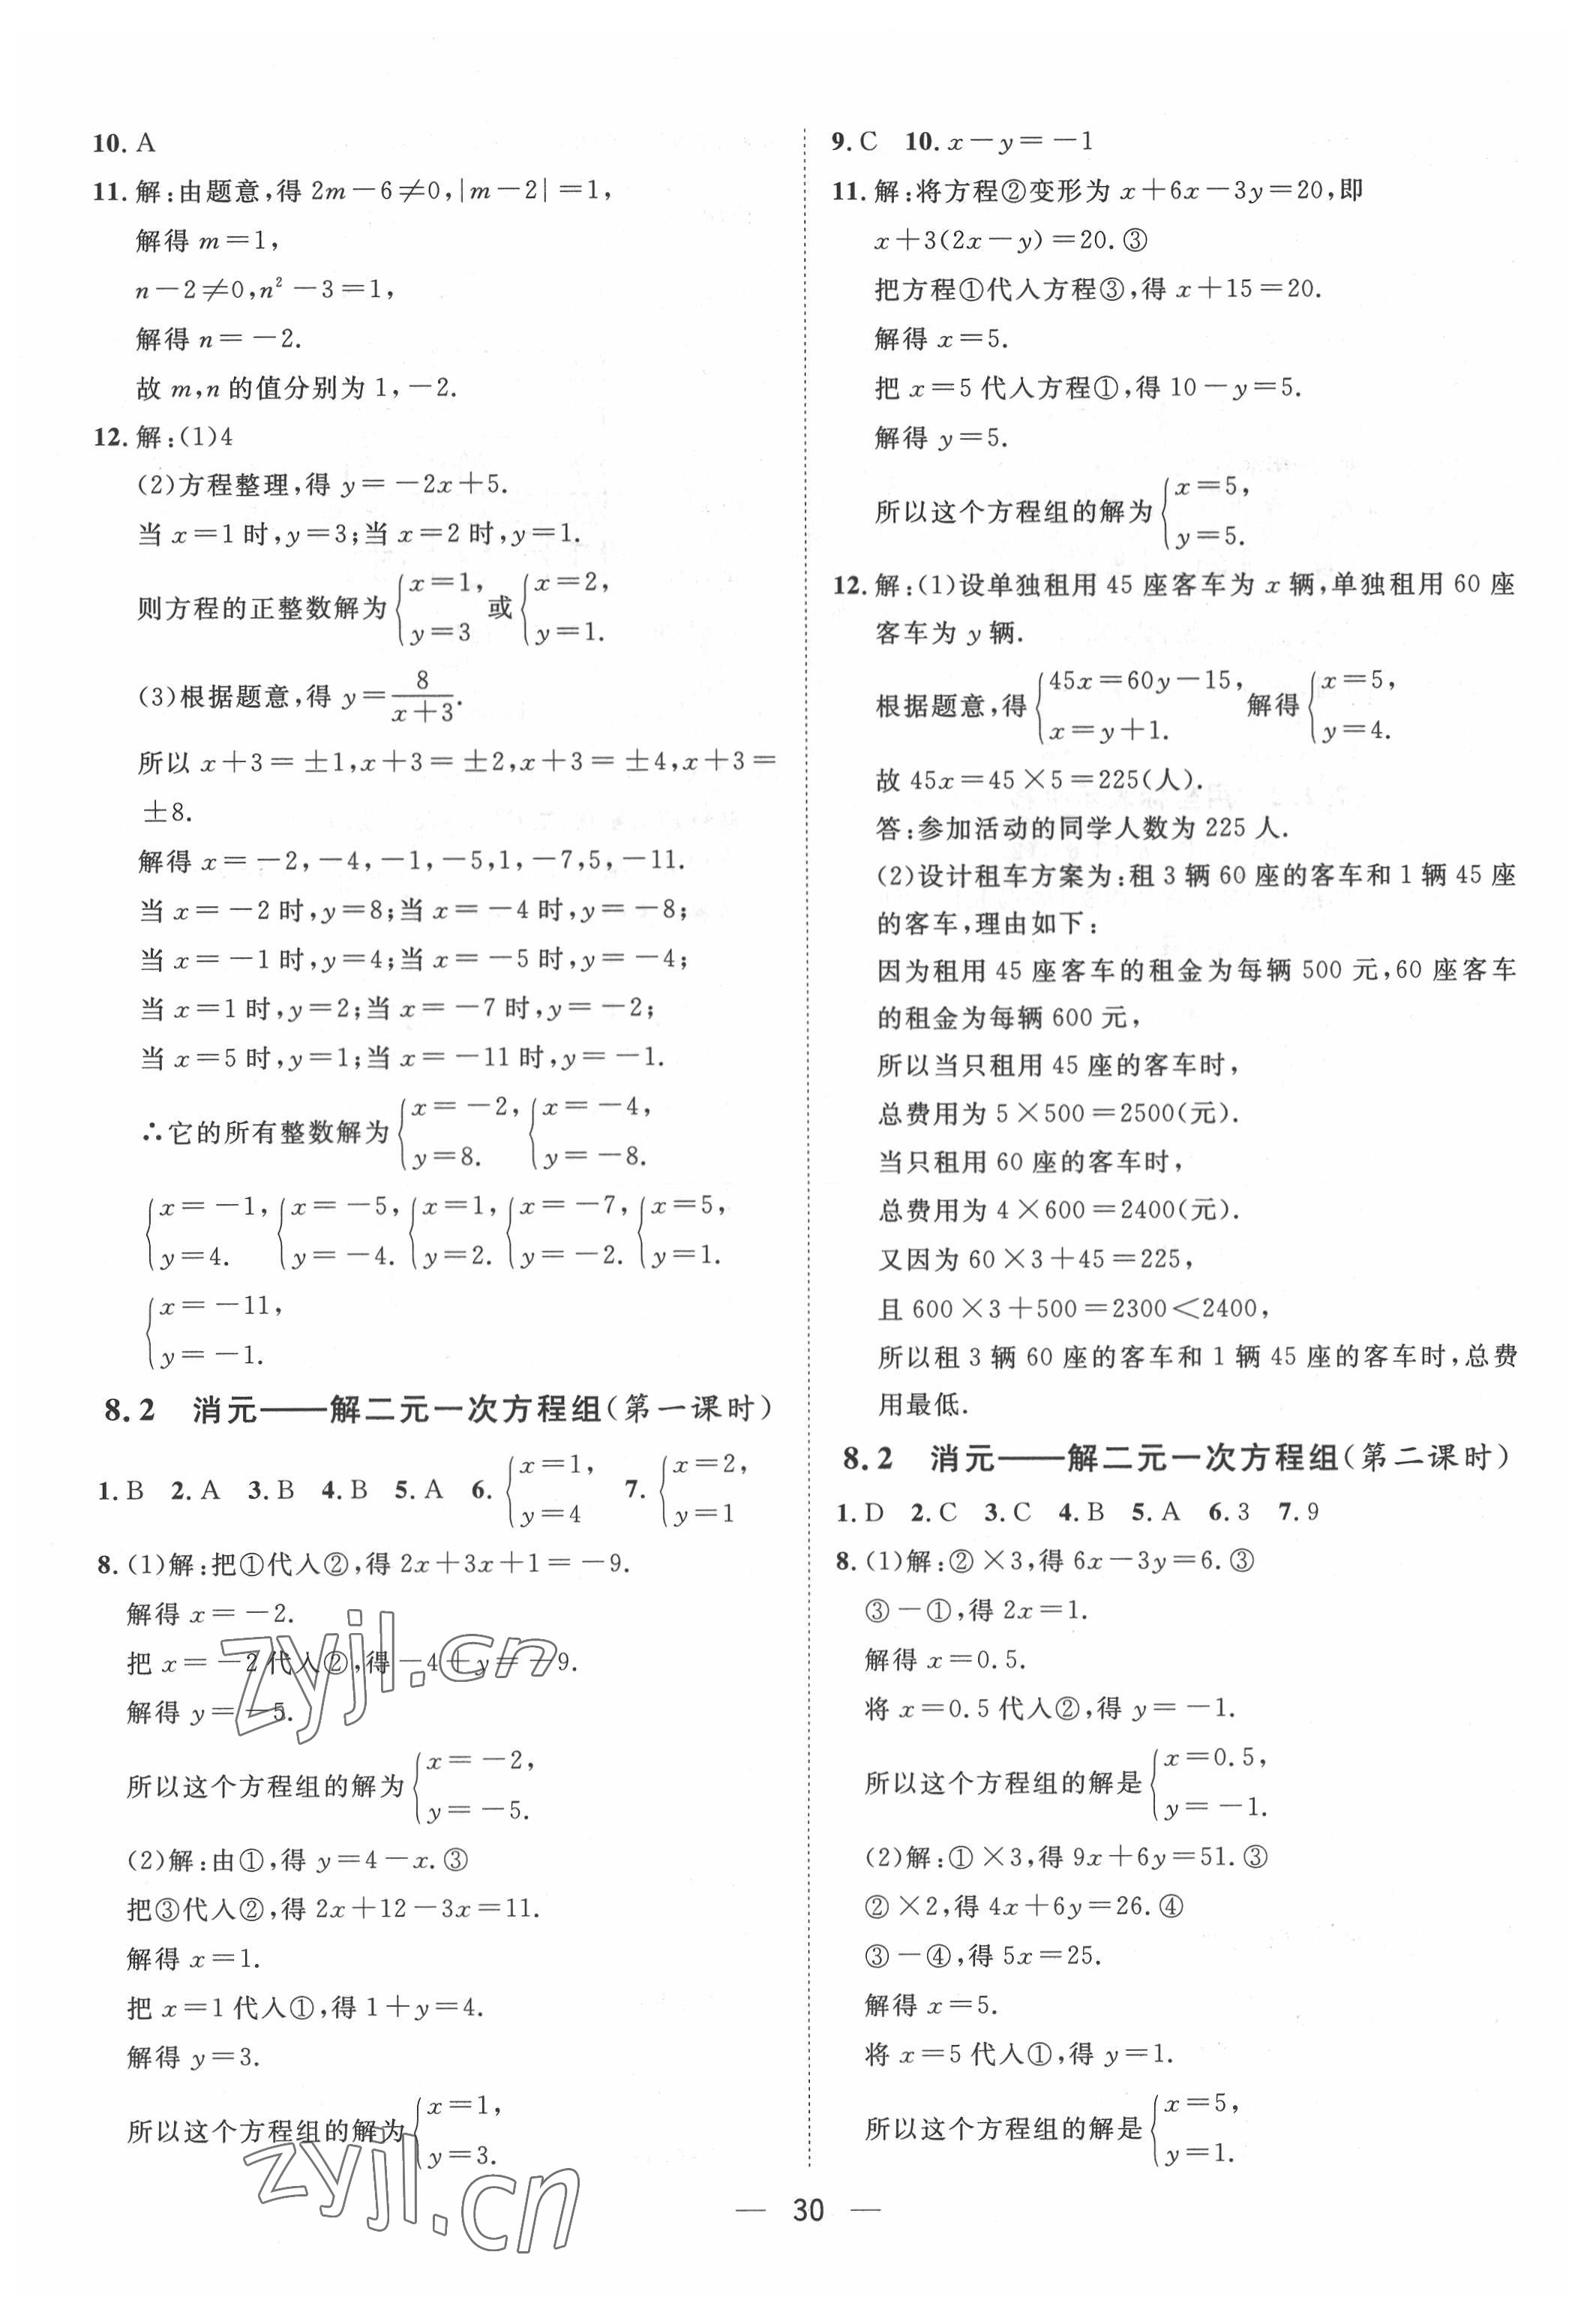 10. A
11. 解:由题意,得 2m-6≠0,|m-2|=1,
解得 m=1,
n-2≠0,n²-3=1,
解得 n=-2.
故 m,n 的值分别为 1,-2.
12. 解:(1)4
(2)方程整理,得 y=-2x+5.
当 x=1 时,y=3;当 x=2 时,y=1.
则方程的正整数解为{x=1, y=3 或{x=2, y=1.
(3)根据题意,得 y=8/(x+3).
所以 x+3=±1,x+3=±2,x+3=±4,x+3=
±8.
解得 x=-2,-4,-1,-5,1,-7,5,-11.
当 x=-2 时,y=8;当 x=-4 时,y=-8;
当 x=-1 时,y=4;当 x=-5 时,y=-4;
当 x=1 时,y=2;当 x=-7 时,y=-2;
当 x=5 时,y=1;当 x=-11 时,y=-1.
∴它的所有整数解为{x=-2, y=8. {x=-4, y=-8.
{x=-1, y=4. {x=-5, y=-4. {x=1, y=2. {x=-7, y=-2. {x=5, y=1.
{x=-11, y=-1.
8.2 消元——解二元一次方程组(第一课时)
1. B 2. A 3. B 4. B 5. A 6. {x=1, y=4 7. {x=2, y=1
8. (1)解:把①代入②,得 2x+3x+1=-9.
解得 x=-2.
把 x=-2 代入②,得-4+y=-9.
解得 y=-5.
所以这个方程组的解为{x=-2, y=-5.
(2)解:由①,得 y=4-x.③
把③代入②,得 2x+12-3x=11.
解得 x=1.
把 x=1 代入①,得 1+y=4.
解得 y=3.
所以这个方程组的解为{x=1, y=3.
9. C 10. x-y=-1
11. 解:将方程②变形为 x+6x-3y=20,即
x+3(2x-y)=20.③
把方程①代入方程③,得 x+15=20.
解得 x=5.
把 x=5 代入方程①,得 10-y=5.
解得 y=5.
所以这个方程组的解为{x=5, y=5.
12. 解:(1)设单独租用 45 座客车为 x 辆,单独租用 60 座
客车为 y 辆.
根据题意,得{45x=60y-15, x=y+1. 解得{x=5, y=4.
故 45x=45×5=225(人).
答:参加活动的同学人数为 225 人.
(2)设计租车方案为:租 3 辆 60 座的客车和 1 辆 45 座
的客车,理由如下:
因为租用 45 座客车的租金为每辆 500 元,60 座客车
的租金为每辆 600 元,
所以当只租用 45 座的客车时,
总费用为 5×500=2500(元).
当只租用 60 座的客车时,
总费用为 4×600=2400(元).
又因为 60×3+45=225,
且 600×3+500=2300<2400,
所以租 3 辆 60 座的客车和 1 辆 45 座的客车时,总费
用最低.
8.2 消元——解二元一次方程组(第二课时)
1. D 2. C 3. C 4. B 5. A 6. 3 7. 9
8. (1)解:②×3,得 6x-3y=6.③
③-①,得 2x=1.
解得 x=0.5.
将 x=0.5 代入②,得 y=-1.
所以这个方程组的解是{x=0.5, y=-1.
(2)解:①×3,得 9x+6y=51.③
②×2,得 4x+6y=26.④
③-④,得 5x=25.
解得 x=5.
将 x=5 代入①,得 y=1.
所以这个方程组的解是{x=5, y=1.
— 30 —
zyjl.cn
zyjl.cn